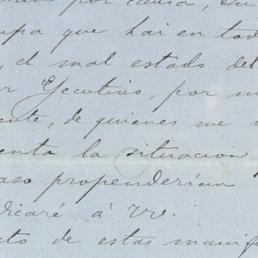 por causa, su
que hai en tod
, el mal estado del
Ejecutivo, por m
ente, de quienes me
enta la situacion
aso propenderían
dicaré á VV.
cto de estas manif